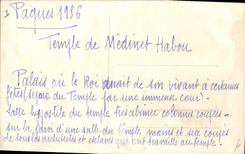 Paques 1926
Temple de Médinet Habou
Palais où le Roi venait de son vivant à certaines
fêtes façon du Temple par une immense cour
Salle hypostile du temple très abimé colonnes coupées
sur la paroi d'une salle du temple mains et sexe coupés
de tous les architectes et esclaves qui ont travaillé au temple